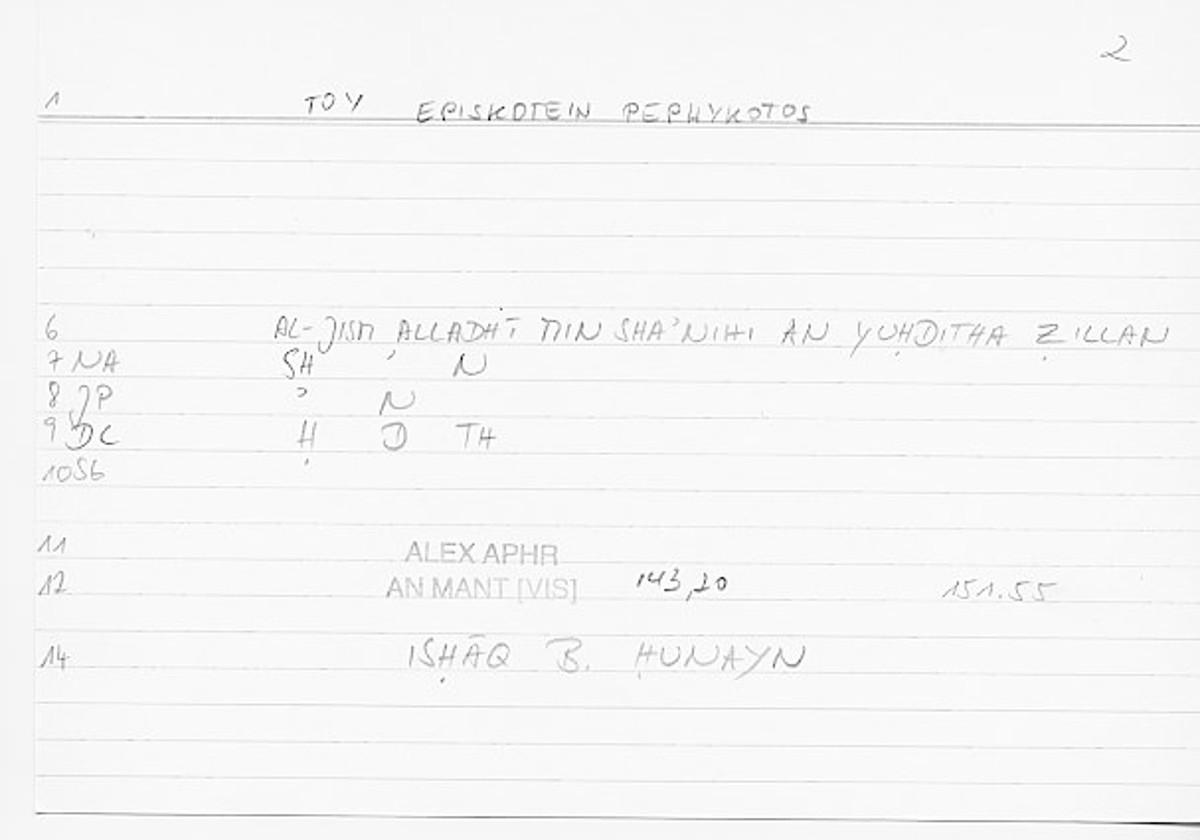 2
1 TOY EPISKOTEIN PEPHYKOTOS
6 AL-JISM ALLADHĪ MIN SHA'NIHI AN YUḤDITHA ẒILLAN
7 NA SH ' N
8 JP ' N
9 DC Ḥ D TH
10 Sb
11 ALEX APHR
12 AN MANT [VIS] 143,20 151.55
14 ISḤĀQ B. ḤUNAYN